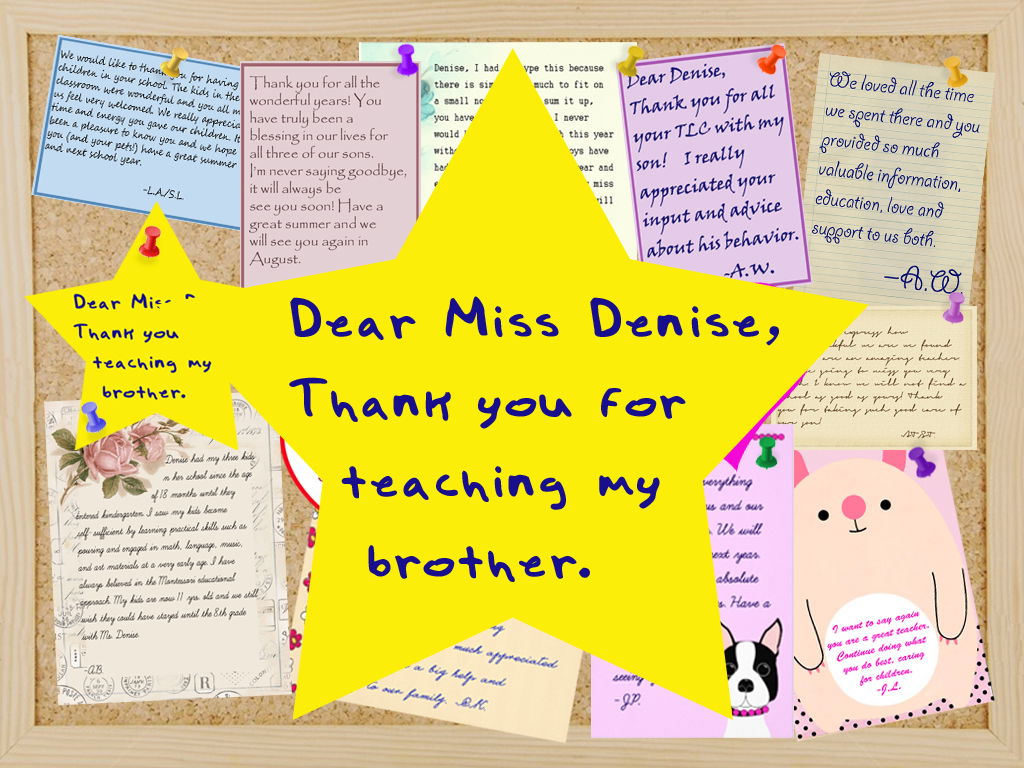 We would like to thank you for having
children in your school. The kids in the
classroom were wonderful and you all m
us feel very welcomed. We really apprecia
time and energy you gave our children. It
been a pleasure to know you and we hope
you (and your pets!) have a great summer
and next school year.
-L.A./S.L.
Thank you for all the
wonderful years! You
have truly been a
blessing in our lives for
all three of our sons.
I'm never saying goodbye,
it will always be
see you soon! Have a
great summer and we
will see you again in
August.
Denise, I had type this because
there is much to fit on
a small no sum it up,
you have I never
would this year
oys have
year and
miss
will
Dear Denise,
Thank you for all
your TLC with my
son! I really
appreciated your
input and advice
about his behavior.
-A.W.
We loved all the time
we spent there and you
provided so much
valuable information,
education, love and
support to us both.
-A.W.
Dear Miss D
Thank you
teaching my
brother.
Dear Miss Denise,
Thank you for
teaching my
brother.
express how
kful we are we found
are an amazing teacher
going to miss you very
I know we will not find a
school as good as yours! Thank
you for taking such good care of
our son!
Denise had my three kids
in her school since the age
of 18 months until they
entered kindergarten. I saw my kids become
self-sufficient by learning practical skills such as
pouring and engaged in math, language, music,
and art materials at a very early age. I have
always believed in the Montessori educational
approach. My kids are now 11 yrs. old and we still
wish they could have stayed until the 8th grade
with Ms. Denise.
-A.B.
much appreciated
a big help and
to our family. -D.K.
everything
us and our
We will
next year.
absolute
s. Have a
seeing
-J.P.
I want to say again
you are a great teacher.
Continue doing what
you do best, caring
for children.
-J.L.